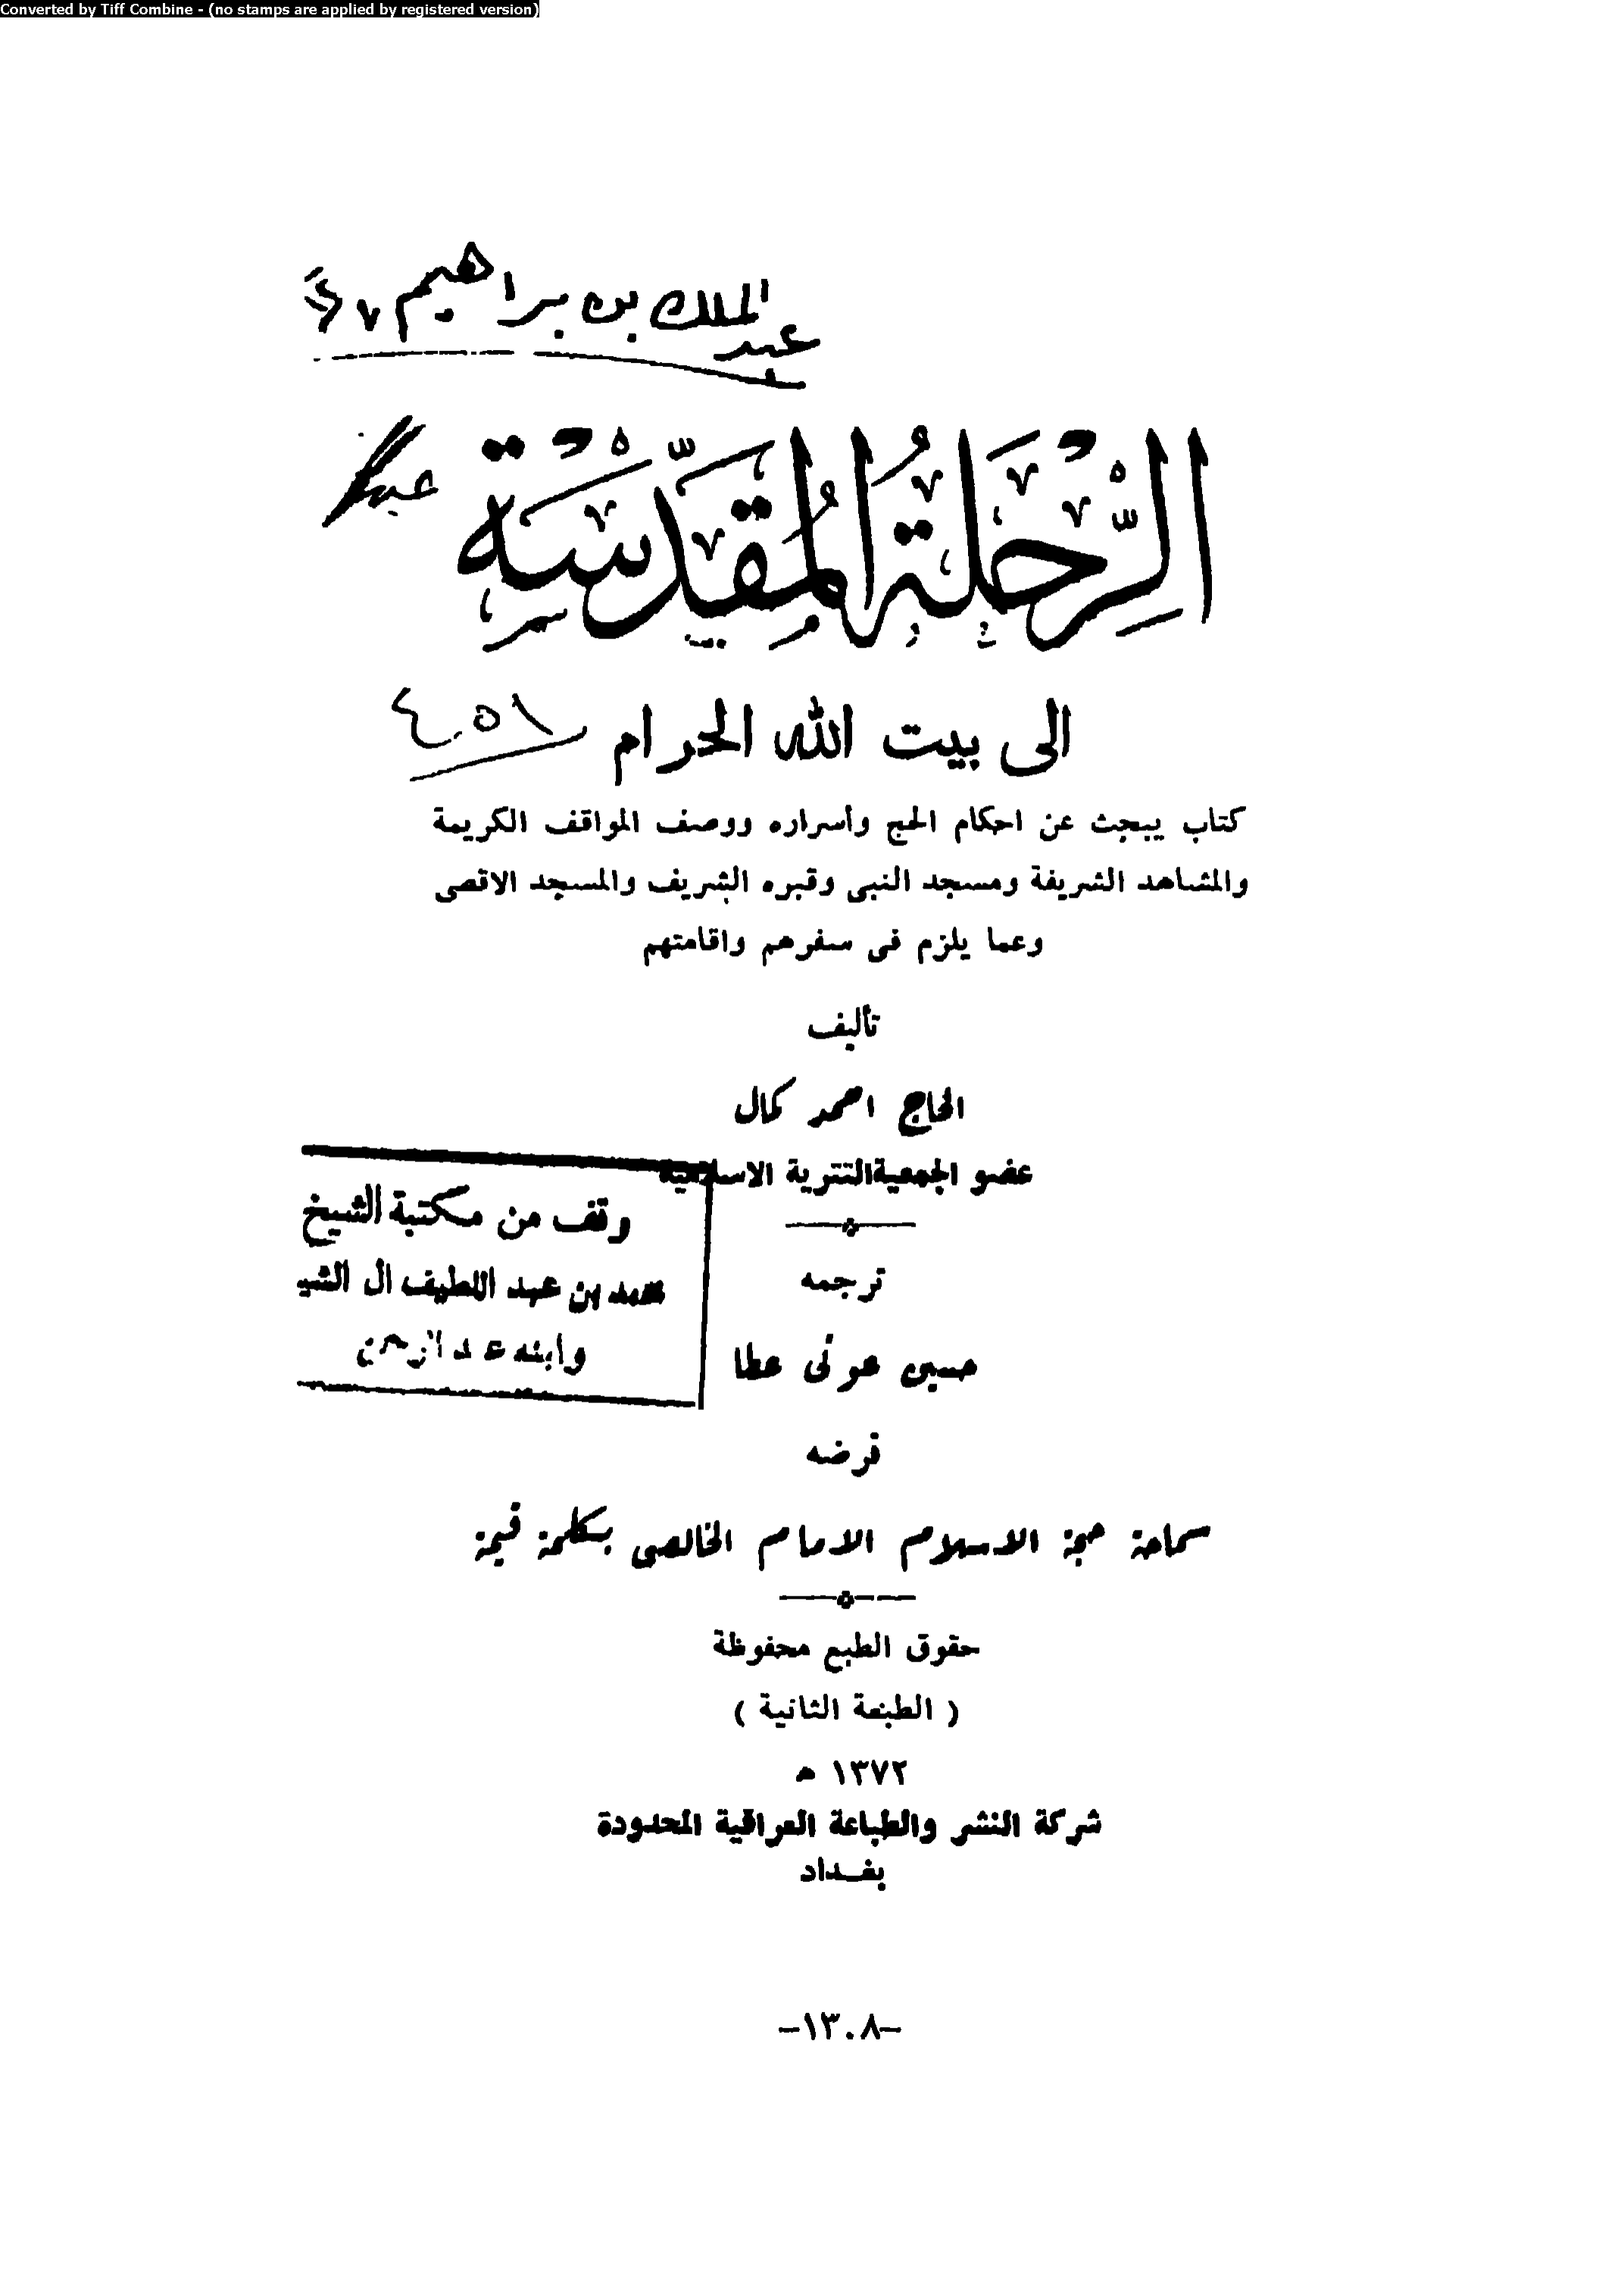 Converted by Tiff Combine - (no stamps are applied by registered version)
عبد الملك بن براهيم
الرِّحْلَةُ الْمُقَدَّسَةُ
الى بيت الله الحرام
كتاب يبحث عن احكام الحج وأسراره ووصف المواقف الكريمة
والمشاهد الشريفة ومسجد النبى وقبره الشريف والمسجد الاقصى
وعما يلزم فى سفرهم واقامتهم
تأليف
الحاج احمد كمال
عضو الجمعية التترية الاسلامية
وقف من مكتبة الشيخ
محمد بن عبد اللطيف ال الشيـ
وابنه عبد الرحمن
ترجمه
حسين عونى عطا
قرضه
سماحة حجة الاسلام الامام الخالصى بكلمة قيمة
حقوق الطبع محفوظة
( الطبعة الثانية )
١٣٧٢ هـ
شركة النشر والطباعة العراقية المحدودة
بغداد
-١٣٠٨-